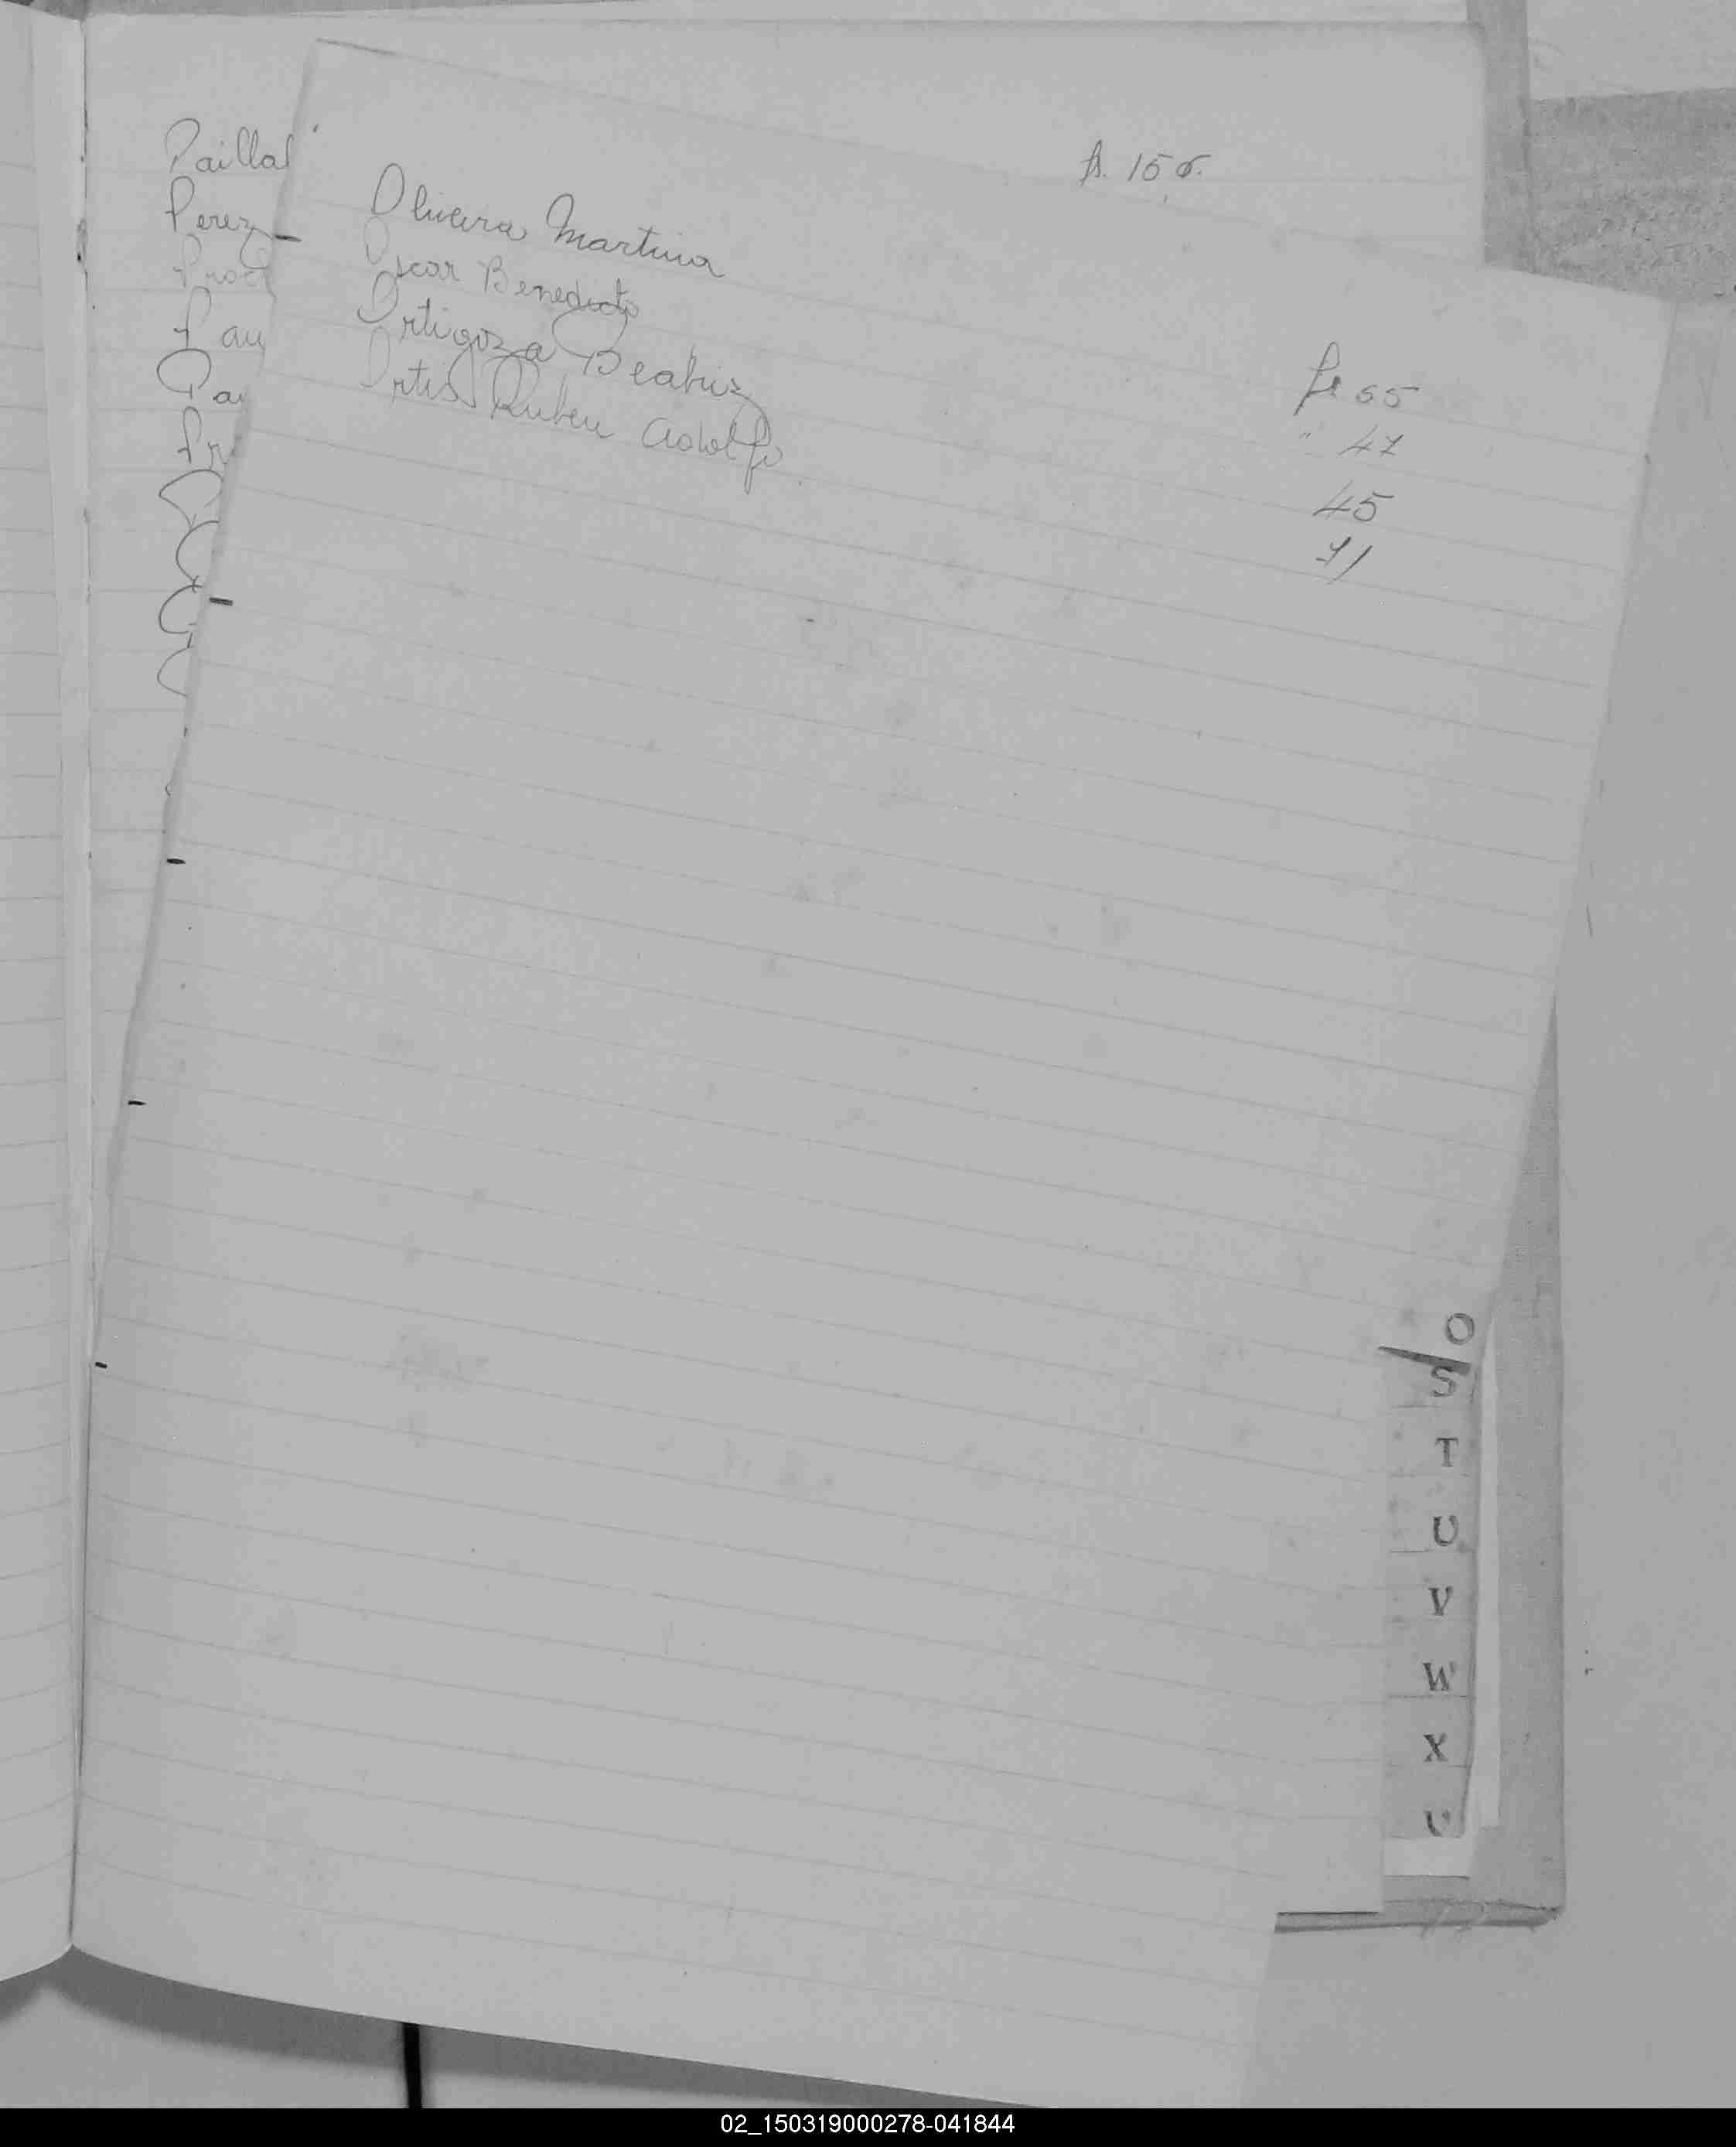 Paillal
Perez
Proc
Pau
Pa
Pr
fs. 156.
Oliveira Martina fs 55
Oscar Benedicto " 47
Ortigoza Beatriz 45
Ortis Ruben Adolfo 71
O
S
T
U
V
W
X
02_150319000278-041844